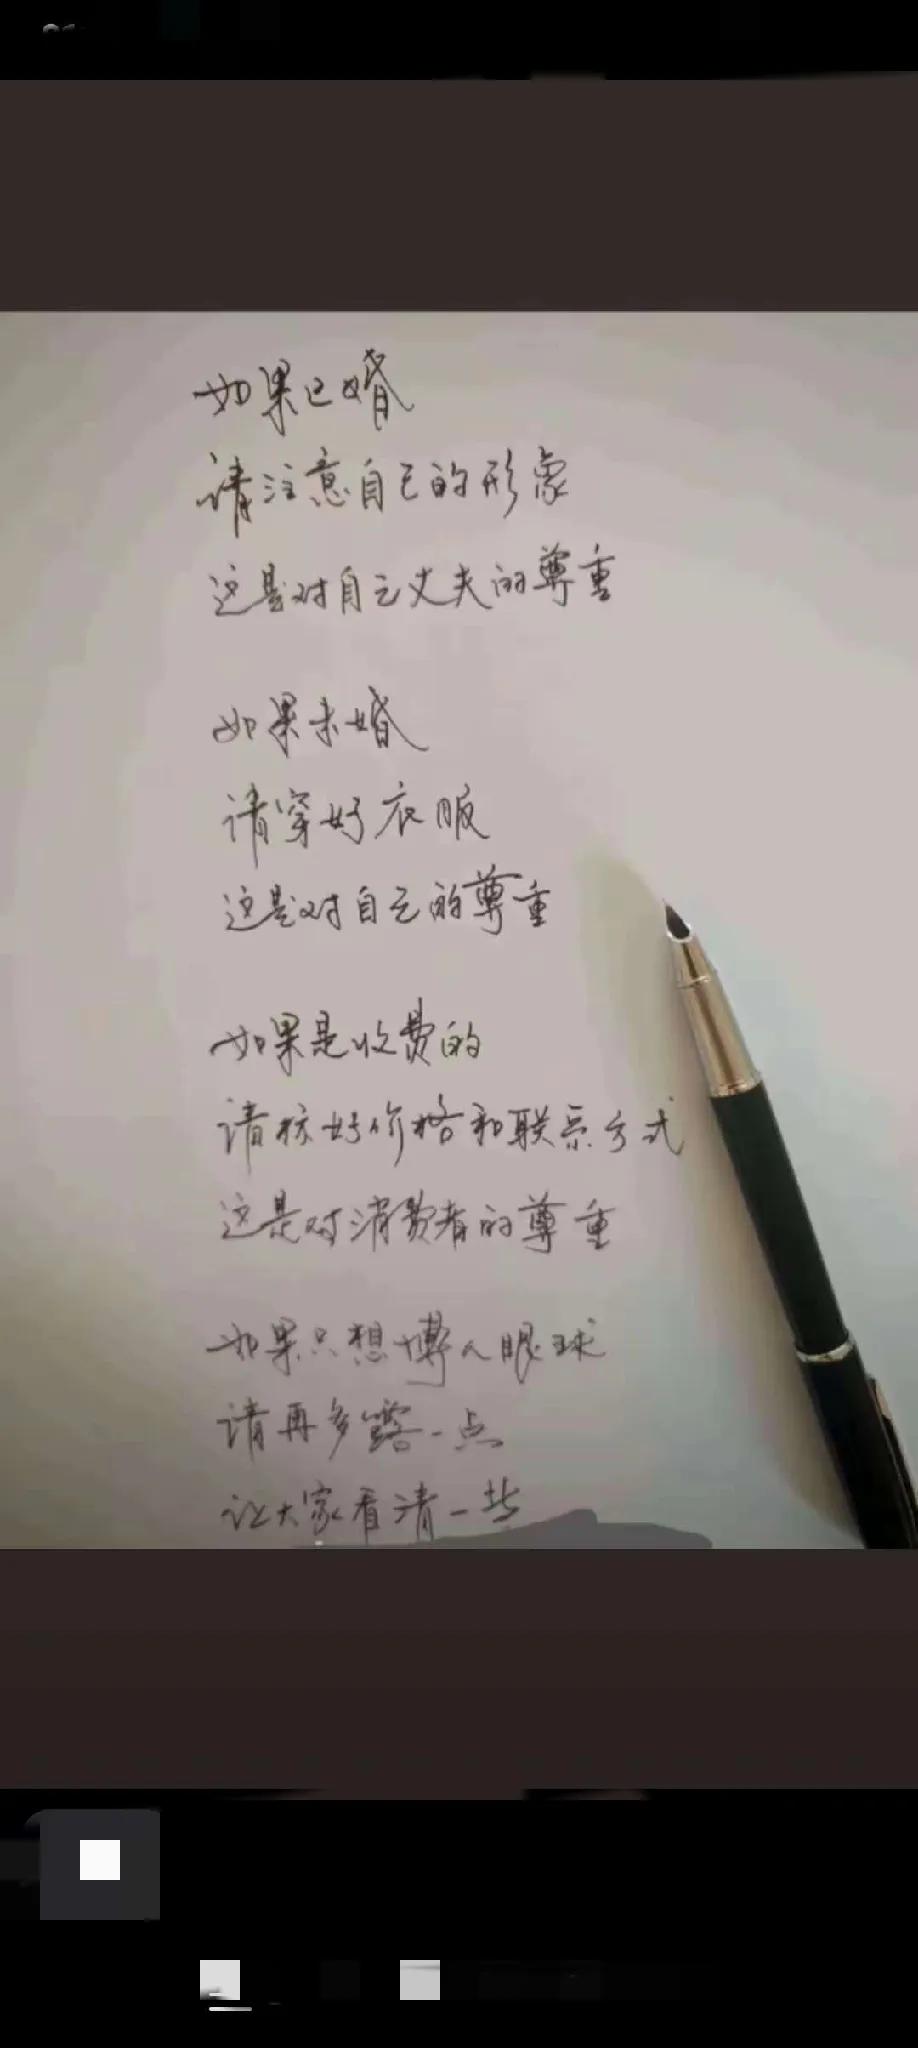 如果已婚
请注意自己的形象
这是对自己丈夫的尊重
如果未婚
请穿好衣服
这是对自己的尊重
如果是收费的
请标好价格和联系方式
这是对消费者的尊重
如果只想博人眼球
请再多露一点
让大家看清一些